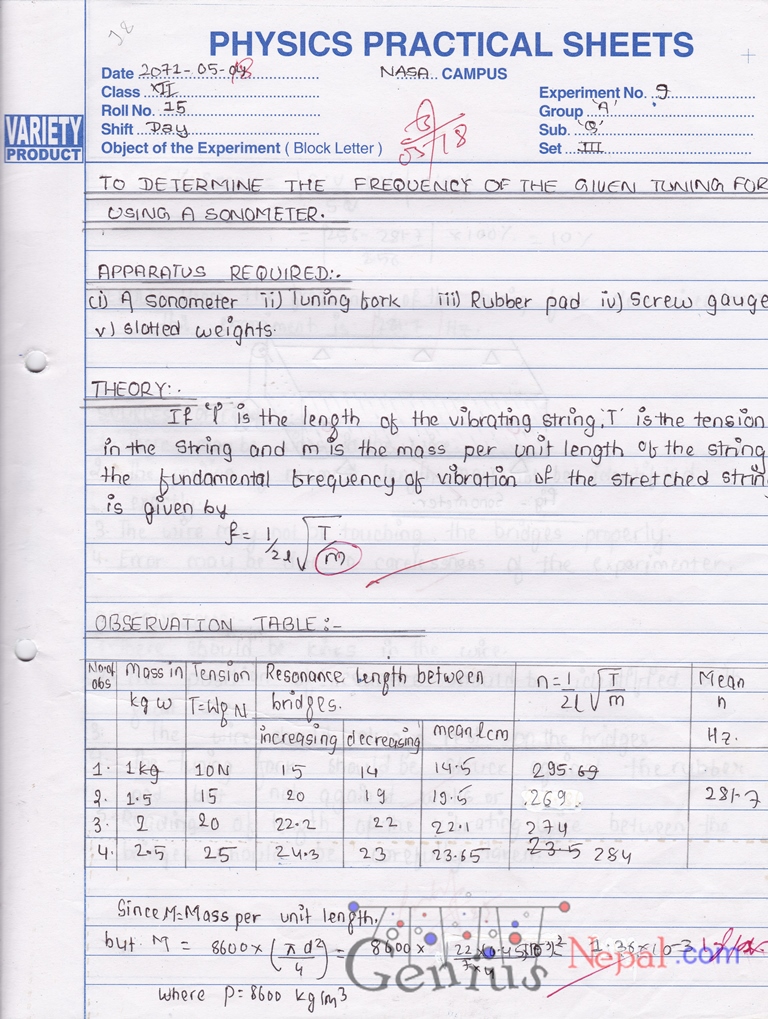 PHYSICS PRACTICAL SHEETS
Date 2071-05-08
NASA CAMPUS
Class XII
Experiment No. 9
Roll No. 15
Group 'A'
Shift Day
Sub. 'B'
Object of the Experiment ( Block Letter )
Set III
VARIETY
PRODUCT
TO DETERMINE THE FREQUENCY OF THE GIVEN TUNING FOR
USING A SONOMETER.
APPARATUS REQUIRED:-
(i) A sonometer ii) Tuning fork iii) Rubber pad iv) Screw gauge
v) slotted weights.
THEORY:-
If 'l' is the length of the vibrating string, 'T' is the tension
in the string and m is the mass per unit length of the string
the fundamental frequency of vibration of the stretched strin
is given by
f = 1/2l √T/m
OBSERVATION TABLE:-
No of obs Mass in kg w Tension T=Wg N Resonance length between bridges. n = 1/2l √T/m Mean n Hz.
increasing decreasing mean l cm
1. 1kg 10N 15 14 14.5 295.69
2. 1.5 15 20 19 19.5 269 281.7
3. 2 20 22.2 22 22.1 274
4. 2.5 25 24.3 23 23.65 23.5 284
Since M=Mass per unit length.
but M = 8600 × (π d²/4) = 8600 × 1.36×10-3
Genius Nepal.com
where ρ=8600 kg/m³